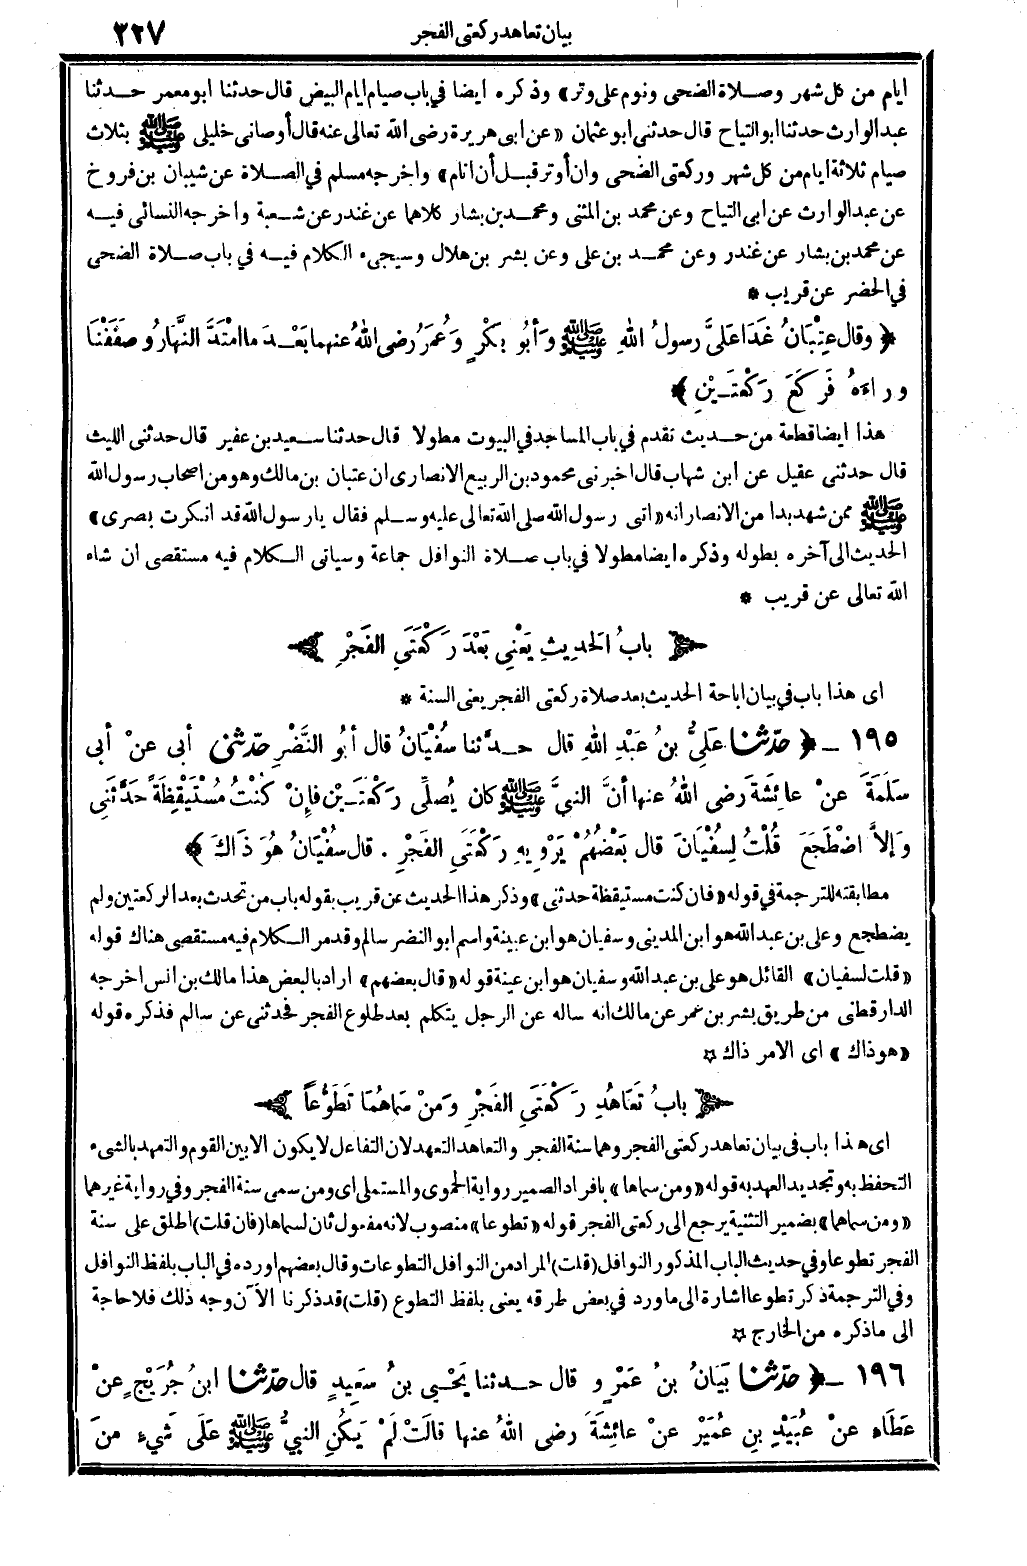 بيان تعاهد ركعتى الفجر ٢٢٧
ايام من كل شهر وصلاة الضحى ونوم على وتر» وذكره ايضا فى باب صيام ايام البيض قال حدثنا ابو معمر حدثنا
عبد الوارث حدثنا ابو التياح قال حدثنى ابو عثمان «عن ابى هريرة رضى الله تعالى عنه قال أوصانى خليلى ﷺ بثلاث
صيام ثلاثة ايام من كل شهر وركعتى الضحى وان أوتر قبل أن انام» واخرجه مسلم فى الصلاة عن شيبان بن فروخ
عن عبد الوارث عن ابى التياح وعن محمد بن المثنى ومحمد بن بشار كلاهما عن غندر عن شعبة واخرجه النسائى فيه
عن محمد بن بشار عن غندر وعن محمد بن على وعن بشر بن هلال وسيجىء الكلام فيه فى باب صلاة الضحى
فى الحضر عن قريب *
﴿ وقال عِتْبَانُ غَدَا عَلىَّ رسولُ اللهِ ﷺ وَأبُو بكْرٍ وَعُمَرُ رضى اللهُ عنهما بَعْدَ ما امْتَدَّ النَّهارُ وصَفَفْنَا
وراءَهُ فَرَكَعَ رَكْعَتَيْنِ ﴾
هذا ايضا قطعة من حديث تقدم فى باب المساجد فى البيوت مطولا قال حدثنا سعيد بن عفير قال حدثنى الليث
قال حدثنى عقيل عن ابن شهاب قال اخبرنى محمود بن الربيع الانصارى ان عتبان بن مالك وهو من اصحاب رسول الله
ﷺ ممن شهد بدا من الانصار انه «اتى رسول الله صلى الله تعالى عليه وسلم فقال يارسول الله قد انكرت بصرى»
الحديث الى آخره بطوله وذكره ايضا مطولا فى باب صلاة النوافل جماعة وسياتى الكلام فيه مستقصى ان شاء
الله تعالى عن قريب *
﴿ بابُ الحَدِيثِ يَعْنِي بَعْدَ رَكْعَتَيِ الفَجْرِ ﴾
اى هذا باب فى بيان اباحة الحديث بعد صلاة ركعتى الفجر يعنى السنة *
١٩٥ – ﴿ حَدَّثنا عَلِيُّ بنُ عَبْدِ اللهِ قال حدَّثنا سُفْيَانُ قال أبُو النَّضْرِ حَدَّثنى أبى عنْ أبى
سَلَمَةَ عنْ عائِشَةَ رضى اللهُ عنها أنَّ النبىَّ ﷺ كان يُصلِّى رَكْعَتَيْن فإنْ كُنْتُ مُسْتَيْقِظَةً حَدَّثَنِي
وَإلاَّ اضْطَجَعَ قُلْتُ لِسُفْيَانَ قال بَعْضُهُمْ يَرْوِيهِ رَكْعَتَيِ الفَجْرِ . قال سُفْيَانُ هُوَ ذَاكَ ﴾
مطابقته للترجمة فى قوله «فان كنت مستيقظة حدثنى» وذكر هذا الحديث عن قريب بقوله باب من تحدث بعد الركعتين ولم
يضطجع وعلى بن عبد الله هو ابن المدينى وسفيان هو ابن عيينة واسم ابو النضر سالم وقد مر الكلام فيه مستقصى هناك قوله
«قلت لسفيان» القائل هو على بن عبد الله وسفيان هو ابن عينة قوله «قال بعضهم» اراد بالبعض هذا مالك بن انس اخرجه
الدارقطنى من طريق بشر بن عمر عن مالك انه ساله عن الرجل يتكلم بعد طلوع الفجر فحدثنى عن سالم فذكره قوله
«هو ذاك» اى الامر ذاك ✩
﴿ بابُ تَعَاهُدِ رَكْعَتَيِ الفَجْرِ وَمَنْ سَمَاهُمَا تَطَوُّعاً ﴾
اى هذا باب فى بيان تعاهد ركعتى الفجر وهما سنة الفجر والتعاهد التعهد لان التفاعل لا يكون الا بين القوم والتعهد بالشىء
التحفظ به وتجديد العهد به قوله «ومن سماها» بافراد الضمير رواية الحموى والمستملى اى ومن سمى سنة الفجر وفى رواية غيرهما
«ومن سماهما» بضمير التثنية يرجع الى ركعتى الفجر قوله «تطوعا» منصوب لانه مفعول ثان لسماها (فان قلت) اطلق على سنة
الفجر تطوعا وفى حديث الباب المذكور النوافل (قلت) المراد من النوافل التطوعات وقال بعضهم اورده فى الباب بلفظ النوافل
وفى الترجمة ذكر تطوعا اشارة الى ما ورد فى بعض طرقه يعنى بلفظ التطوع (قلت) قد ذكرنا الآن وجه ذلك فلا حاجة
الى ماذكره من الخارج ✩
١٩٦ – ﴿ حَدَّثنا بَيَانُ بنُ عَمْرٍو قال حدثنا يَحْيى بنُ سعِيدٍ قال حَدَّثنا ابنُ جُرَيْجٍ عنْ
عَطَاءٍ عنْ عُبَيْدِ بنِ عُمَيْرٍ عنْ عائِشَةَ رضى اللهُ عنها قالَتْ لَمْ يَكُنِ النبيُّ ﷺ عَلَى شَيْءٍ مِنَ